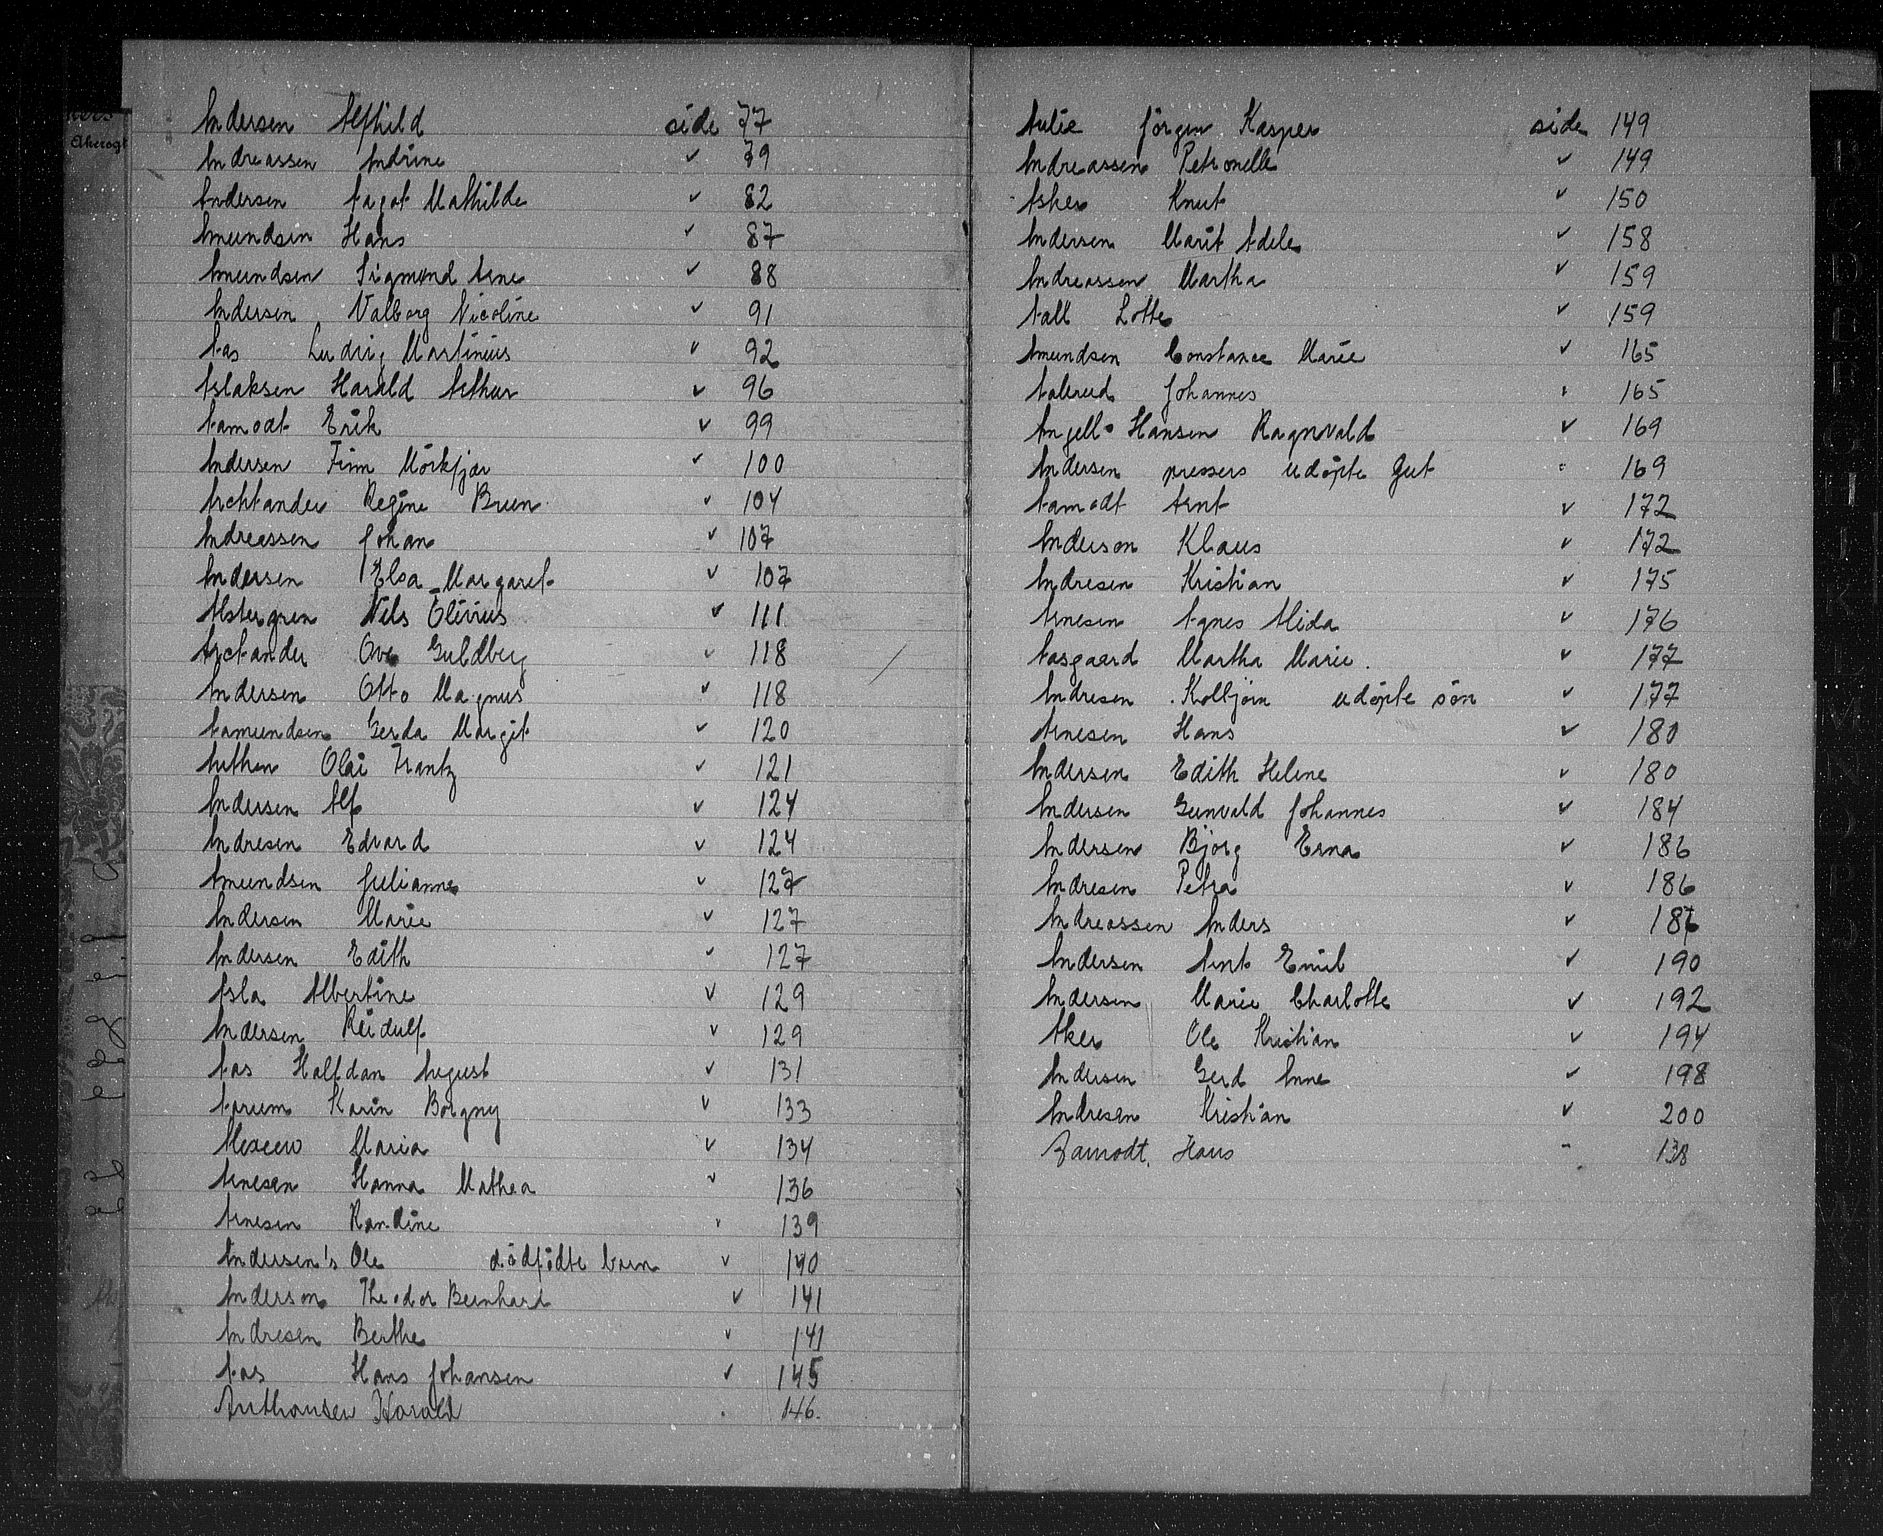 Andersen Alfhild side 77
Andreassen Andrine v 79
Andersen Aagot Mathilde v 82
Amundsen Hans v 87
Amundsen Sigmund Arne v 88
Andersen Valborg Nicoline v 91
Aas Ludvig Martinius v 92
Aslaksen Harald Arthur v 96
Aamodt Erik v 99
Andersen Finn Mörkfjær v 100
Arctander Regine Bruun v 104
Andreassen Johan v 107
Andersen Elsa Margaret v 107
Alstergren Nils Olivius v 111
Arctander Ove Guldberg v 118
Andersen Otto Magnus v 118
Aamundsen Gerda Margit v 120
Authen Olai Frantz v 121
Andersen Alf v 124
Andresen Edvard v 124
Amundsen Julianne v 127
Andersen Marie v 127
Andersen Edith v 127
Asla Albertine v 129
Andersen Reidulf v 129
Aas Halfdan August v 131
Aarum Karin Borgny v 133
Maria v 134
Arnesen Hanna Mathea v 136
Arnesen Randine v 139
Andersen's Ole dödfödte barn v 140
Anderson Theodor Bernhard v 141
Andresen Berthe v 141
Aas Hans Johansen v 145
Anthonsen Harald 146.
Aulie Jörgen Kasper side 149
Andreassen Petronelle v 149
Asker Knut v 150
Andersen Marit Adele v 158
Andreassen Martha v 159
Aall Lotte v 159
Amundsen Constance Marie v 165
Aallerud Johannes 165
Angell-Hansen Ragnvald v 169
Andersen udöpte Gut 169
Aamodt Arnt v 172
Anderson Klaus v 172
Andresen Kristian v 175
Arnesen Agnes Alida v 176
Aasgaard Martha Marie. v 177
Andresen Kolbjörn udöpte sön v 177
Arnesen Hans v 180
Andersen Edith Helene v 180
Andersen Gunvald Johannes v 184
Andersen Bjorg Erna v 186
Andresen Petra v 186
Andreassen Anders v
Andersen Arnt Emil v 190
Andersen Marie Charlotte v 192
Aker Ole Kristian v 194
Andersen Gerd Anne v 198
Andresen Kristian v 200
Aamodt. Hans - 138